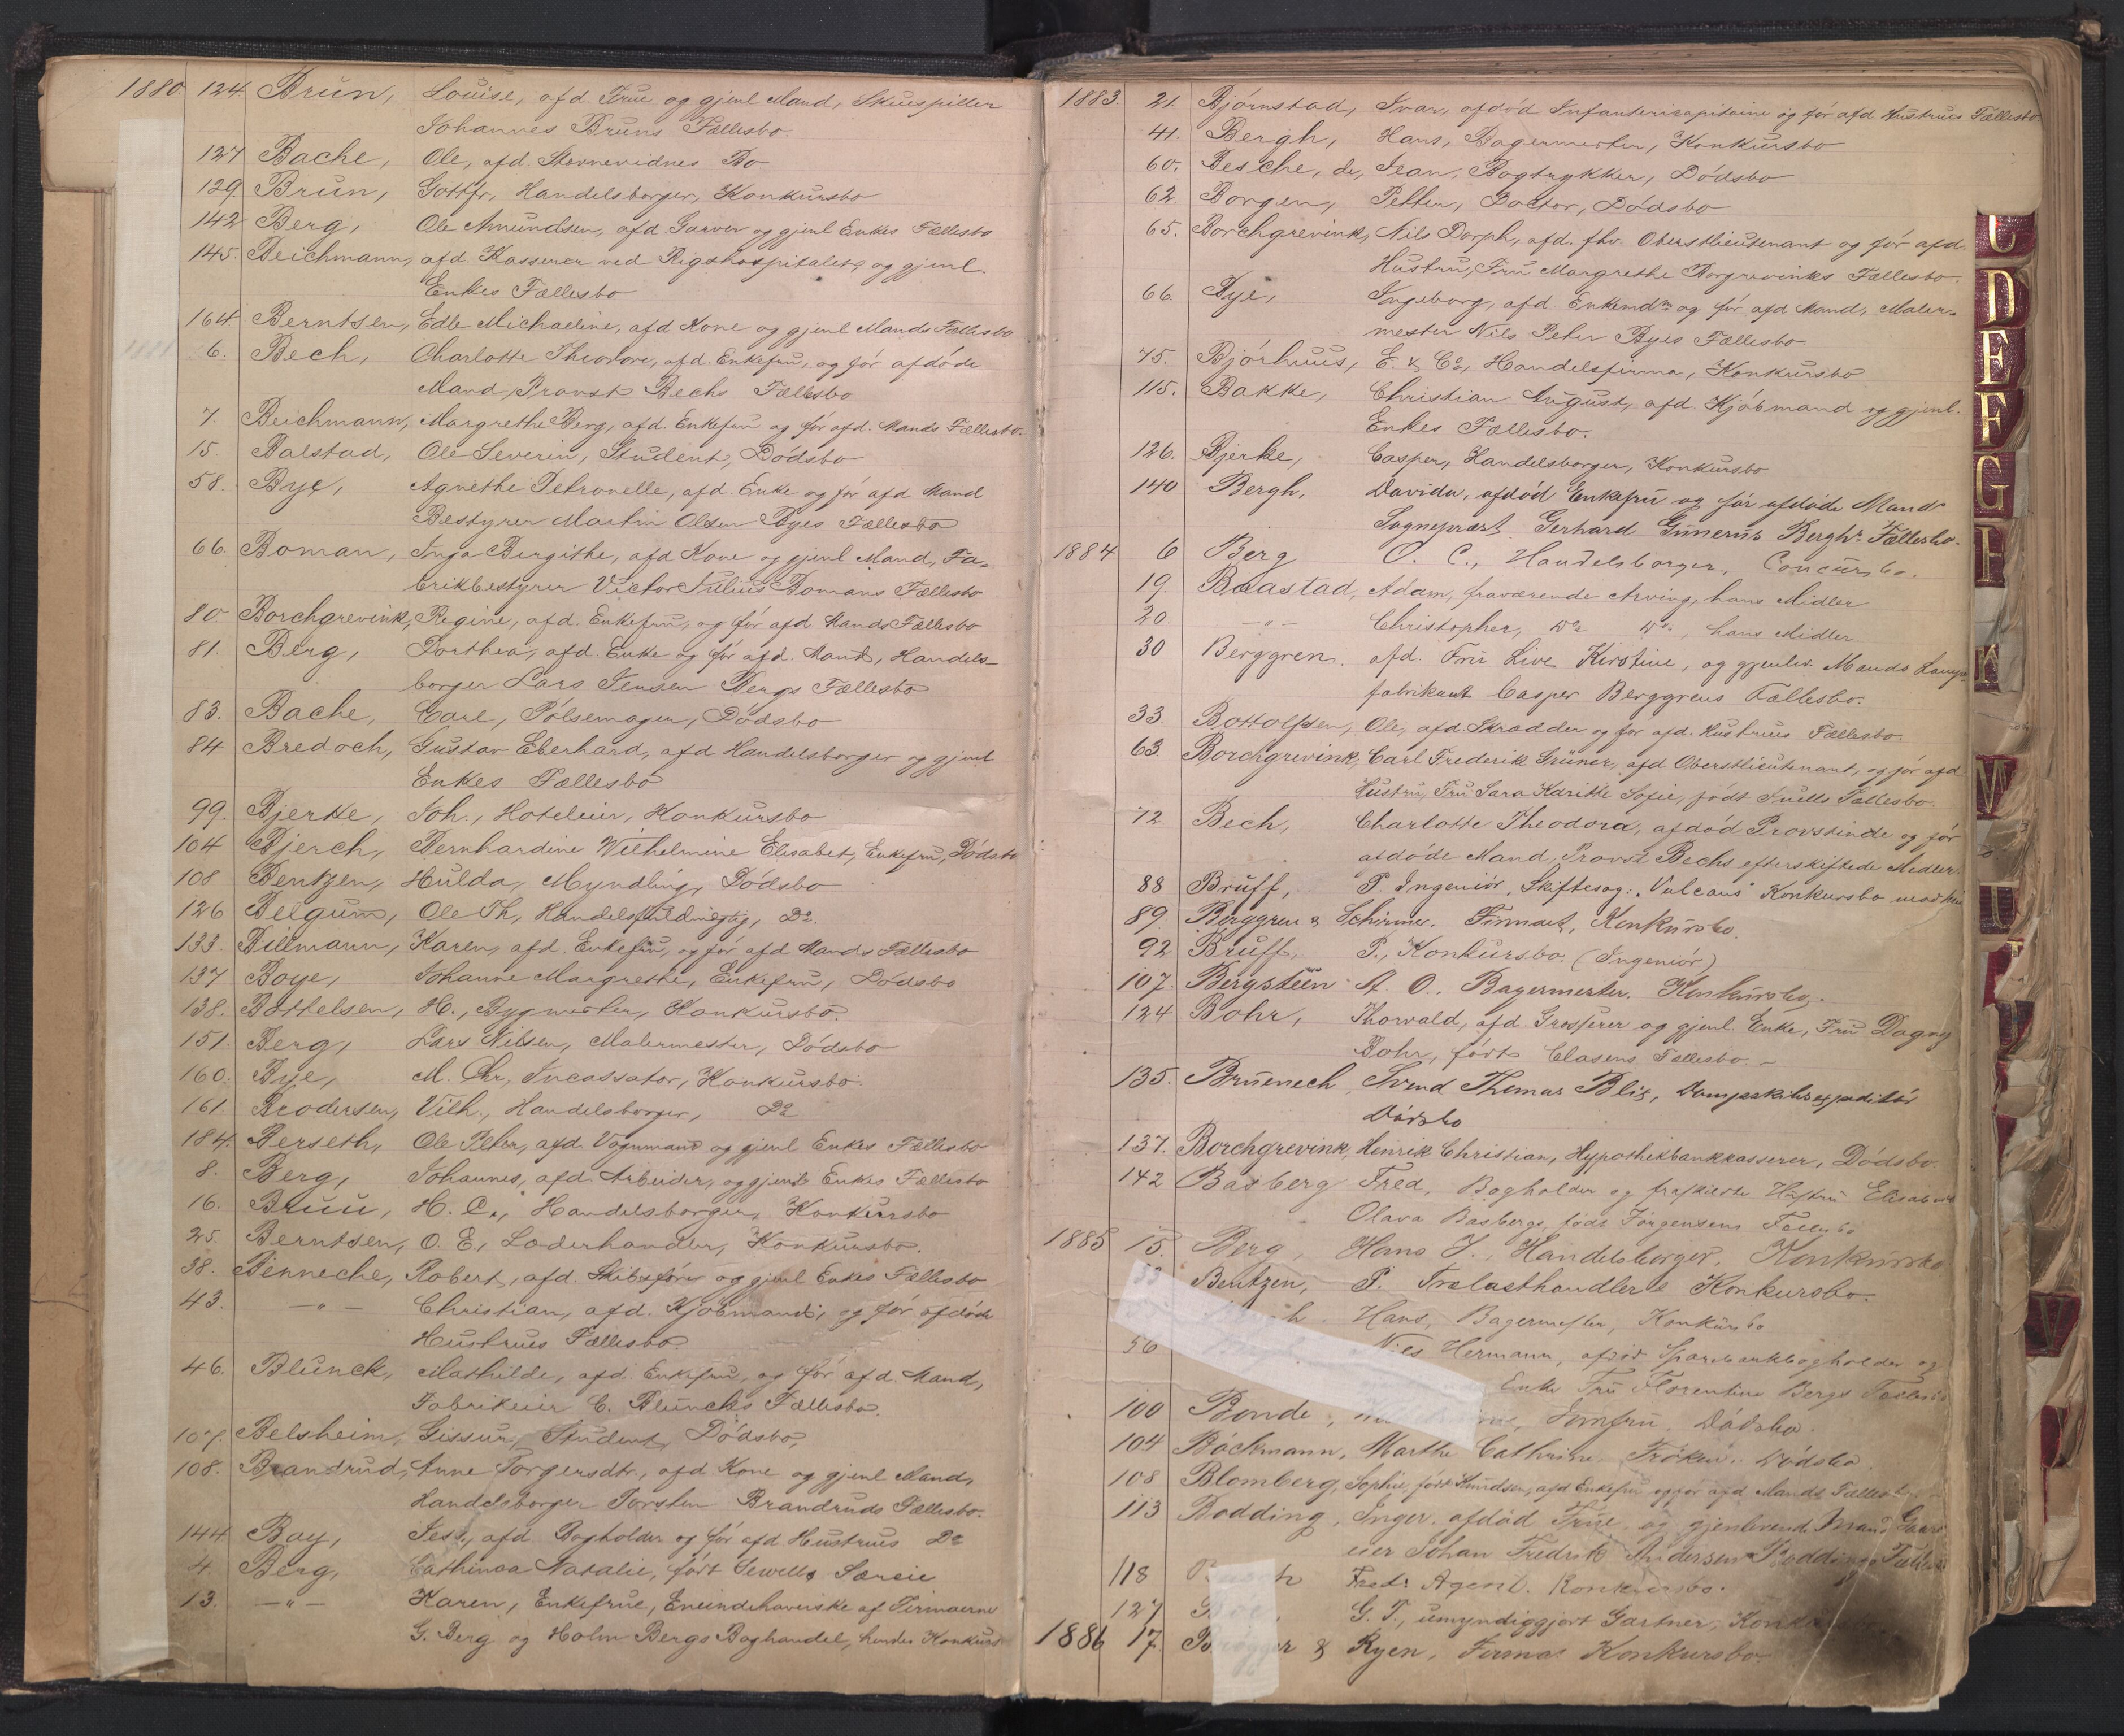 1880 124. Brun, Louise, afd. Frue og gjenl Mand, Skuespiller
Johannes Bruns Fællesbo.
127 Bache, Ole, afd. Bo
129. Brun, Gottfr, Handelsborger, Konkursbo
142 Berg, Ole Amundsen, afd. Garver og gjenl Enkes Fællesbo
145. Beichmann, afd. Kasserer ved Rigshospitalet, og gjenl.
Enkes Fællesbo
164. Berntsen, Edle Michaeline, afd Kone og gjenl Mands Fællesbo
1881 6. Bech, Charlotte Theodore, afd. Enkefru, og før afdøde
Mand, Provst Bechs Fællesbo
7. Beichmann, Margrethe Berg, afd. Enkefru og før afd. Mands Fællesbo.
15. Balstad, Ole Severin, Student, Dødsbo
58. Bye, Agnethe Petronelle, afd. Enke og før afd Mand
Bestyrer Martin Olsen Byes Fællesbo
66. Boman, Inga Birgithe, afd Kone og gjenl Mand, Fa-
brikbestyrer Victor Julius Bomans Fællesbo
80 Borchgrevink, Regine, afd. Enkefru, og før afd. Mands Fællesbo
81. Berg, Dorthea, afd. Enke og før afd. Mand, Handels-
borger Lars Jensen Bergs Fællesbo
83. Bache, Carl, Pølsemager, Dødsbo
84 Bredoch, Gustav Eberhard, afd Handelsborger og gjenl
Enkes Fællesbo
99. Bjerke, Joh., Hoteleier, Konkursbo
104 Bjerch, Bernhardine Wilhelmine Elisabet, Enkefru, Dødsbo
108 Bentzen, Hulda, Myndling, Dødsbo
126 Belgum, Ole Th, Do.
133. Billmann, Karen, afd. Enkefru, og før afd Mands Fællesbo
137 Boye, Johanne Margrethe, Enkefru, Dødsbo
138. Bottelsen, H., Bygmester, Konkursbo.
151. Berg, Lars Nilsen, Malermester, Dødsbo
160. Bye, M. Chr, Incassator, Konkursbo.
161 Brodersen, Vilh., Handelsborger, Do
184. Berseth, Ole Peter, afd. Vognmand og gjenl Enkes Fællesbo
8. Berg, Johannes, afd. Arbeider, og gjenl Enkes Fællesbo
16. Bruu, H. C., Handelsborger, Konkursbo
25. Berntsen, O. E., Læderhandler, Konkursbo.
38. Benneche, Robert, afd. Skibsfører og gjenl Enkes Fællesbo
43. —"— Christian, afd. Kjøbmand, og før afdøde
Hustrues Fællesbo
46. Blunck, Mathilde, afd. Enkefru, og før afd. Mand,
Fabrikeier C. Bluncks Fællesbo.
107. Belsheim, Gissur, Student, Dødsbo,
108. Brandrud, Anne Torgersdtr., afd Kone og gjenl Mand,
Handelsborger Torsten Brandruds Fællesbo.
144 Bay, Jess, afd. Bogholder og før afd Hustrues Do
4. Berg, Cathinca Natalie, født Sewells Særeie
13. —"— Karen, Enkefrue, Eneindehaverske af Firmaerne
G. Berg og Holm Bergs Boghandel, hendes Konkurs
1883. 21. Bjørnstad, Ivar, afdød Infantericapitaine og før afd Hustrues Fællesbo
41. Bergh, Hans, Bagermester, Konkursbo
60. Besche, de, Jean, Bogtrykker, Dødsbo
62. Borgen, Petter, Doctor, Dødsbo
65. Borchgrevink, Nils Dorph, afd. fhv. Oberstlieutenant og før afd.
Hustru, Fru Margrethe Borgrevinks Fællesbo.
66. Bye, Ingeborg, afd. Enkemd. og før afd Mand, Maler-
mester Nils Peter Byes Fællesbo.
75. Bjørhuus, E. & Co, Handelsfirma, Konkursbo
115. Bakke, Christian August, afd. Kjøbmand og gjenl.
Enkes Fællesbo.
126. Bjerke, Casper, Handelsborger, Konkursbo
140 Bergh, Davida, afdød Enkefru og før afdøde Mand
Sogneprest Gerhard Gunerus Berghs Fællesbo.
1884 6 Berg O. C., Handelsborger, Concursbo.
19. Baastad, Adam, fraværende Arving, hans Midler
20. —"— Christopher, Do Do, hans Midler.
30 Berggren, afd. Fru Live Kirstine, og gjenlev. Mands Lampe-
fabrikant Casper Berggrens Fællesbo.
33. Bottolfsen, Ole, afd. Skrædder og før afd. Hustrues Fællesbo.
63 Borchgrevink, Carl Frederik Grüner, afd Oberstlieutenant, og før afd
Hustru, Fru Sara Karitke Sofie, født Juells Fællesbo.
72 Bech, Charlotte Theodora, afdød Provstinde og før
afdøde Mand, Provst Bechs efterskiftede Midler.
88 Bruff, P. Ingeniør, Skiftesag: "Vulcans" Konkursbo mod
89. Berggren & Schirmer, Firmaet, Konkursbo.
92 Bruff, P., Konkursbo. (Ingeniør)
107. Bergsteen A. O., Bagermester, Konkursbo.
124 Bohr, Thorvald, afd. Grosserer og gjenl. Enke, Fru Dagny
Bohr, født Clasens Fællesbo.
135. Bruenech, Svend Thomas Blix, Dampskibsexpeditør
Dødsbo
137. Borchgrevink, Henrik Christian, Hypothekbankkasserer, Dødsbo.
142 Basberg Fred, Bogholder og fraskilte Hustru Elisabeth
Olava Basbergs, født Jørgensens Fællesbo
1885 15. Berg, Hans J., Handelsborger, Konkursbo
33 Bentzen, P. Trælasthandler, Konkursbo.
Hans, Bagermester, Konkursbo
56 Niels Hermann, afdød Sparebankbogholder og
Enke Fru Florentine Bergs Fællesbo
100 Bonde, Jomfru, Dødsbo.
104 Bøckmann, Marthe Cathrine, Frøken, Dødsbo
108 Blomberg, Sophie, født Knudsen, afd Enkefru og før afd Mands Fællesbo
113 Bodding, Inger, afdød Frue, og gjenlevende Mand Gaard-
eier Johan Fredrik Andersen Boddings Fællesbo
118 Fredr. Agent. Konkursbo.
127 G. T., umyndiggjort Gartner,
1886 17. Brøgger & Ryen, Firma Konkursbo.
C
D
E
F
G
K
M
V